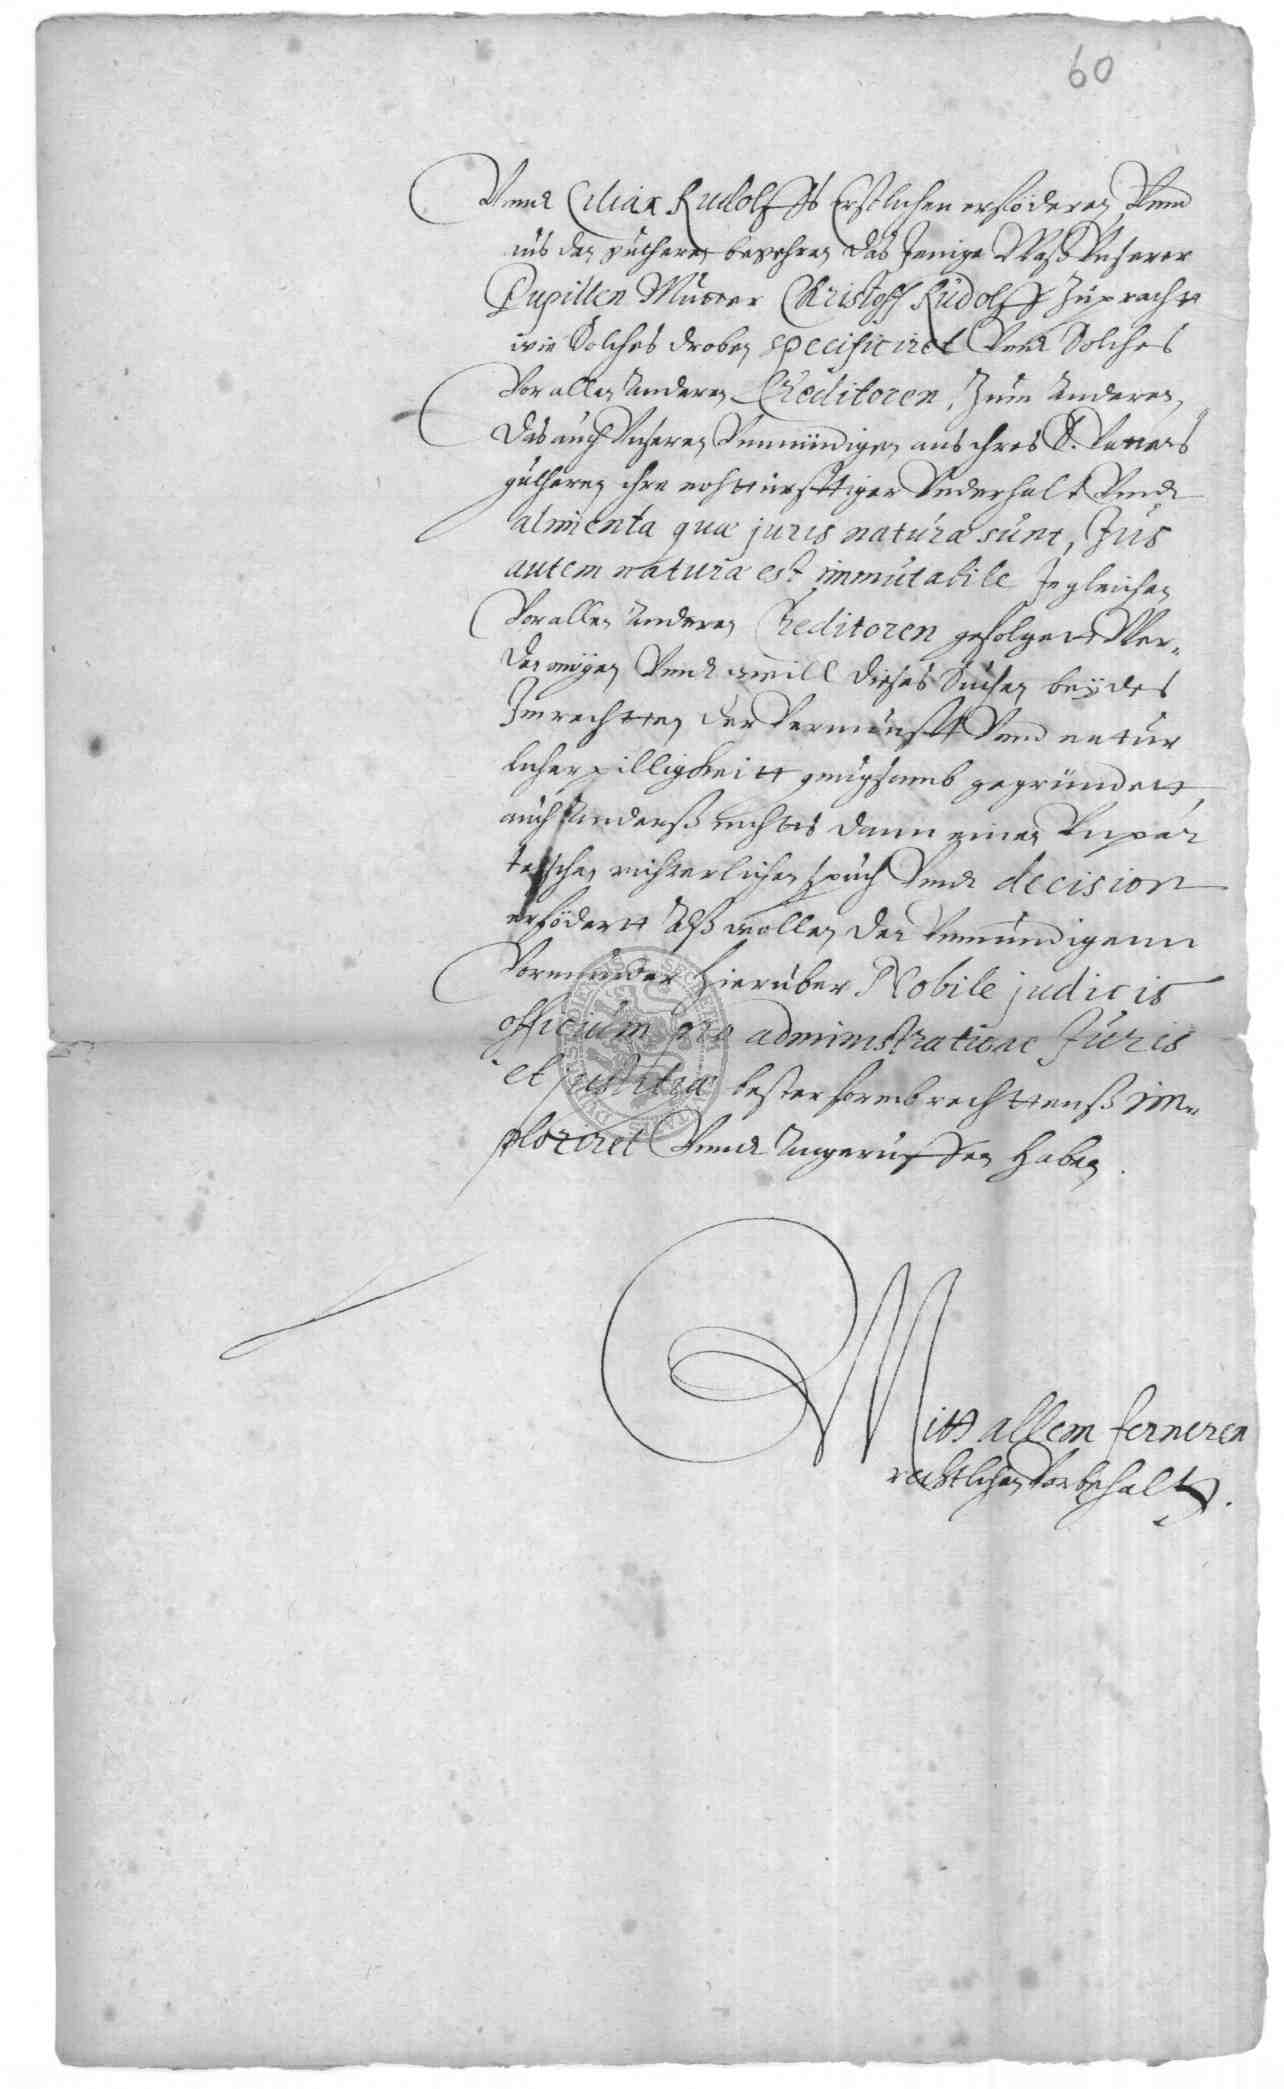 60
Vnnd Ciliax Rudolffs Erstlichen erföderen Vnnd
aus den güthern begehren das Jenige Waß Vnserer
Pupillen Mutter Christoff Rudolff Zugebracht
wie Solches droben specificiret Vnnd Solches
Vor allen Anderen Creditoren, Zum Anderen,
das auch Vnseren Vnmündigen aus ihres S. Vatters
gütheren ihre nohtturfftiger Vnderhalt Vnnd
alimenta quæ juris naturæ sunt, Jus
autem naturæ est immutabile Jngleichen
Vor allen Anderen Creditoren gefolget Wer-
den mögen Vnnd weill dieses Suchen beÿdes
Jm rechtten der Vernunfft Vnnd natur
licher pilligkeitt gnugsamb gegründett,
auch Anderß nichts dann einen Vnpar
teischen richterlichen spruch Vnnd decision
erfödertt Alß wollen der Vnmündigenn
Vormünder hierüber Nobile judicis
officium pro administratione Juris
et justitiæ bester formb rechttenß im-
ploriret Vnnd Angeruffen haben.
Mitt allem ferneren
rechtlichen Vorbehaltt.